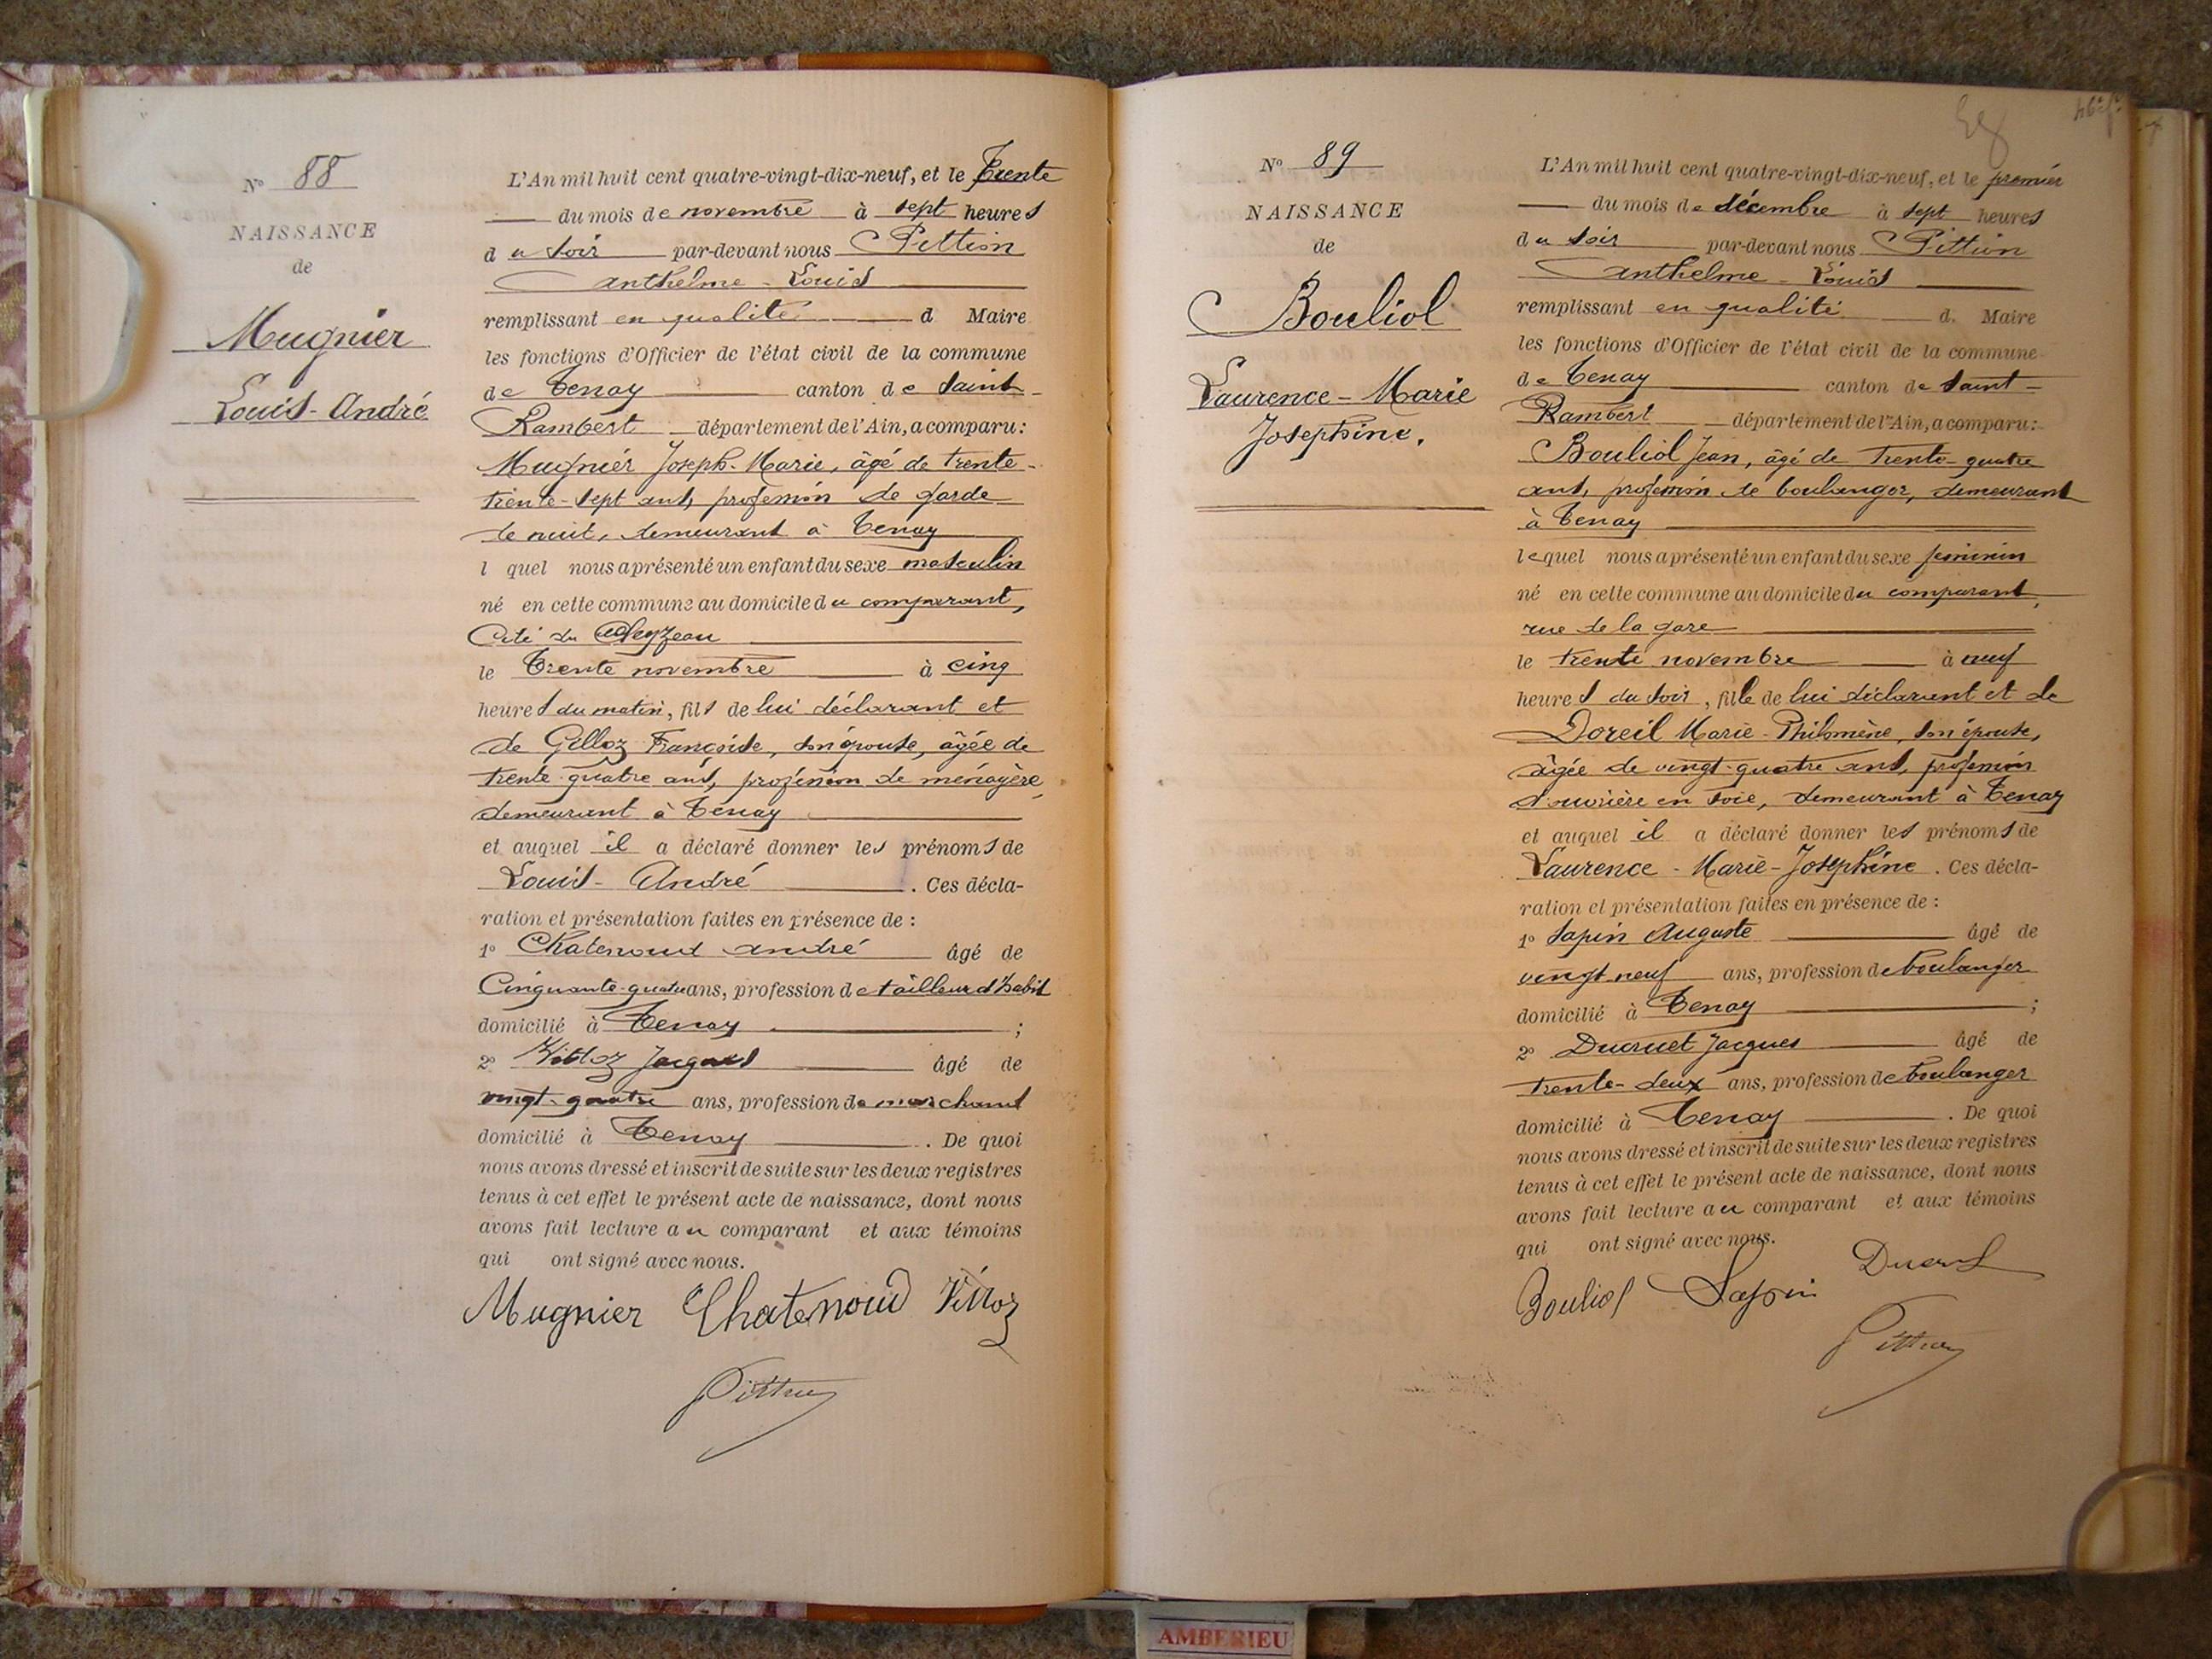 N° 88
NAISSANCE
de
Mugnier
Louis-André
L'An mil huit cent quatre-vingt-dix-neuf, et le trente
du mois de novembre à sept heures
du soir par-devant nous Pittion
Anthelme-Louis
remplissant en qualité d Maire
les fonctions d'Officier de l'état civil de la commune
de Tenay canton de Saint-
Rambert département de l'Ain, a comparu:
Mugnier Joseph-Marie, âgé de trente-
trente-sept ans, profession de garde
de nuit, demeurant à Tenay
l quel nous a présenté un enfant du sexe masculin
né en cette commune au domicile du comparant,
Cité du
le trente novembre à cinq
heures du matin, fils de lui déclarant et
de Gilloz Françoise, son épouse, âgée de
trente-quatre ans, profession de ménagère,
demeurant à Tenay
et auquel il a déclaré donner les prénoms de
Louis-André. Ces décla-
ration et présentation faites en présence de :
1° Chatenoud André âgé de
Cinquante-quatre ans, profession de tailleur d'habit
domicilié à Tenay ;
2° Vittoz Jacques âgé de
vingt-quatre ans, profession de marchand
domicilié à Tenay. De quoi
nous avons dressé et inscrit de suite sur les deux registres
tenus à cet effet le présent acte de naissance, dont nous
avons fait lecture au comparant et aux témoins
qui ont signé avec nous.
Mugnier Chatenoud Vittoz
Pittion
N° 89
NAISSANCE
de
Bouliol
Laurence-Marie
Josephine.
L'An mil huit cent quatre-vingt-dix-neuf, et le premier
du mois de décembre à sept heures
du soir par-devant nous Pittion
Anthelme-Louis
remplissant en qualité d. Maire
les fonctions d'Officier de l'état civil de la commune
de Tenay canton de Saint-
Rambert département de l'Ain, a comparu:
Bouliol Jean, âgé de trente-quatre
ans, profession de boulanger, demeurant
à Tenay
lequel nous a présenté un enfant du sexe féminin
né en cette commune au domicile du comparant,
rue de la gare
le trente novembre à neuf
heures du soir, fille de lui déclarant et de
Doreil Marie-Philomène, son épouse,
âgée de vingt-quatre ans, profession
d'ouvrière en soie, demeurant à Tenay
et auquel il a déclaré donner les prénoms de
Laurence-Marie-Josephine. Ces décla-
ration et présentation faites en présence de :
1° Sapin Auguste âgé de
vingt-neuf ans, profession de boulanger
domicilié à Tenay ;
2° Ducruet Jacques âgé de
trente-deux ans, profession de boulanger
domicilié à Tenay. De quoi
nous avons dressé et inscrit de suite sur les deux registres
tenus à cet effet le présent acte de naissance, dont nous
avons fait lecture au comparant et aux témoins
qui ont signé avec nous.
Ducruet
Bouliol Sapin
Pittion
AMBERIEU